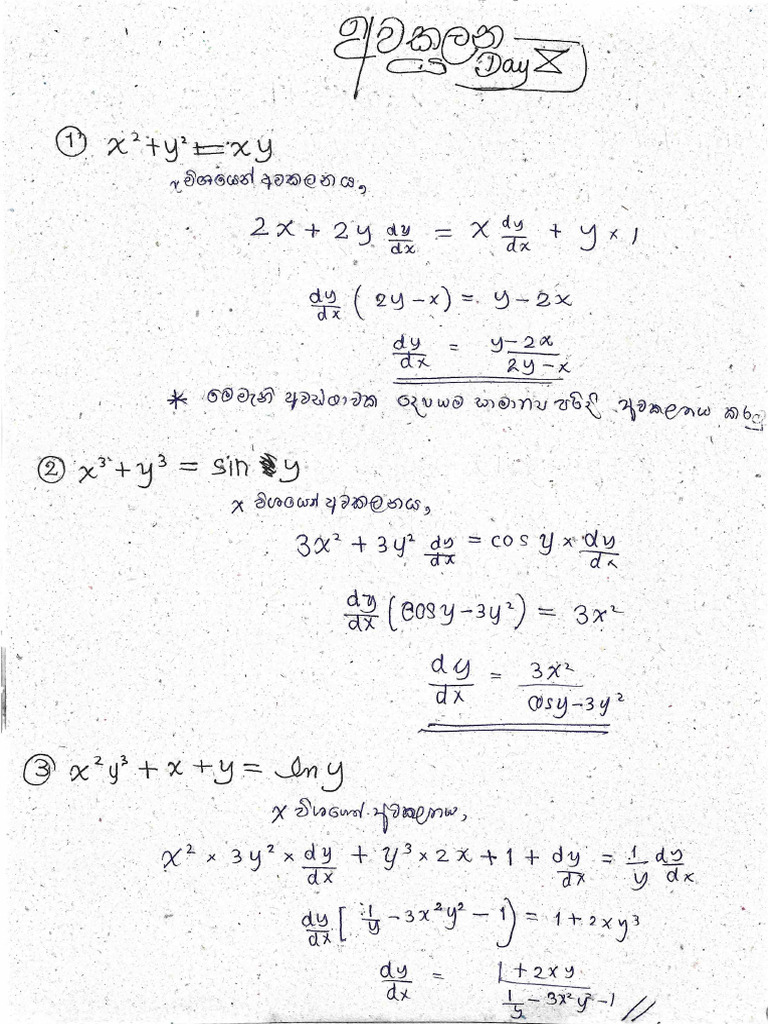 අවකලන
Day X
① x² + y² = xy
x විශයෙන් අවකලනය,
2x + 2y dy/dx = x dy/dx + y × 1
dy/dx ( 2y − x ) = y − 2x
dy/dx = y − 2x / 2y − x
* මෙමැනි අවස්ථාවක දෙපයම සාමාන්‍ය පරිදි අවකලනය කරමු
② x³ + y³ = sin y
x විශයෙන් අවකලනය,
3x² + 3y² dy/dx = cos y × dy/dx
dy/dx ( cosy − 3y² ) = 3x²
dy/dx = 3x² / cosy − 3y²
③ x²y³ + x + y = ln y
x විශයෙන් අවකලනය,
x² × 3y² × dy/dx + y³ × 2x + 1 + dy/dx = 1/y dy/dx
dy/dx [ 1/y − 3x²y² − 1 ) = 1 + 2xy³
dy/dx = 1 + 2xy / 1/y − 3x²y² − 1 //